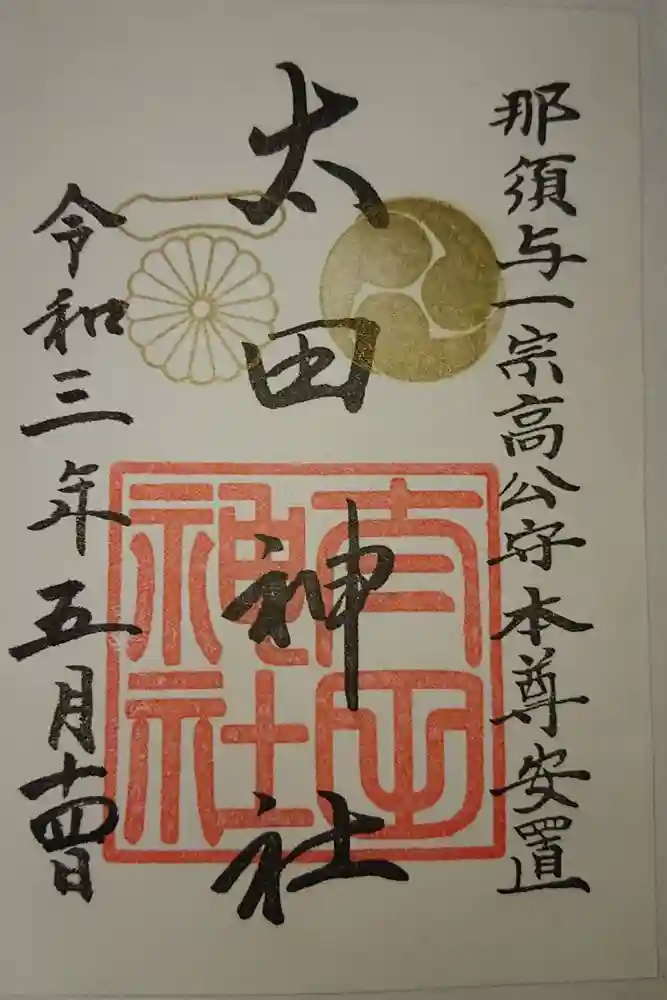 那須与一宗高公守本尊安置
太田神社
太田神社
令和三年五月十四日